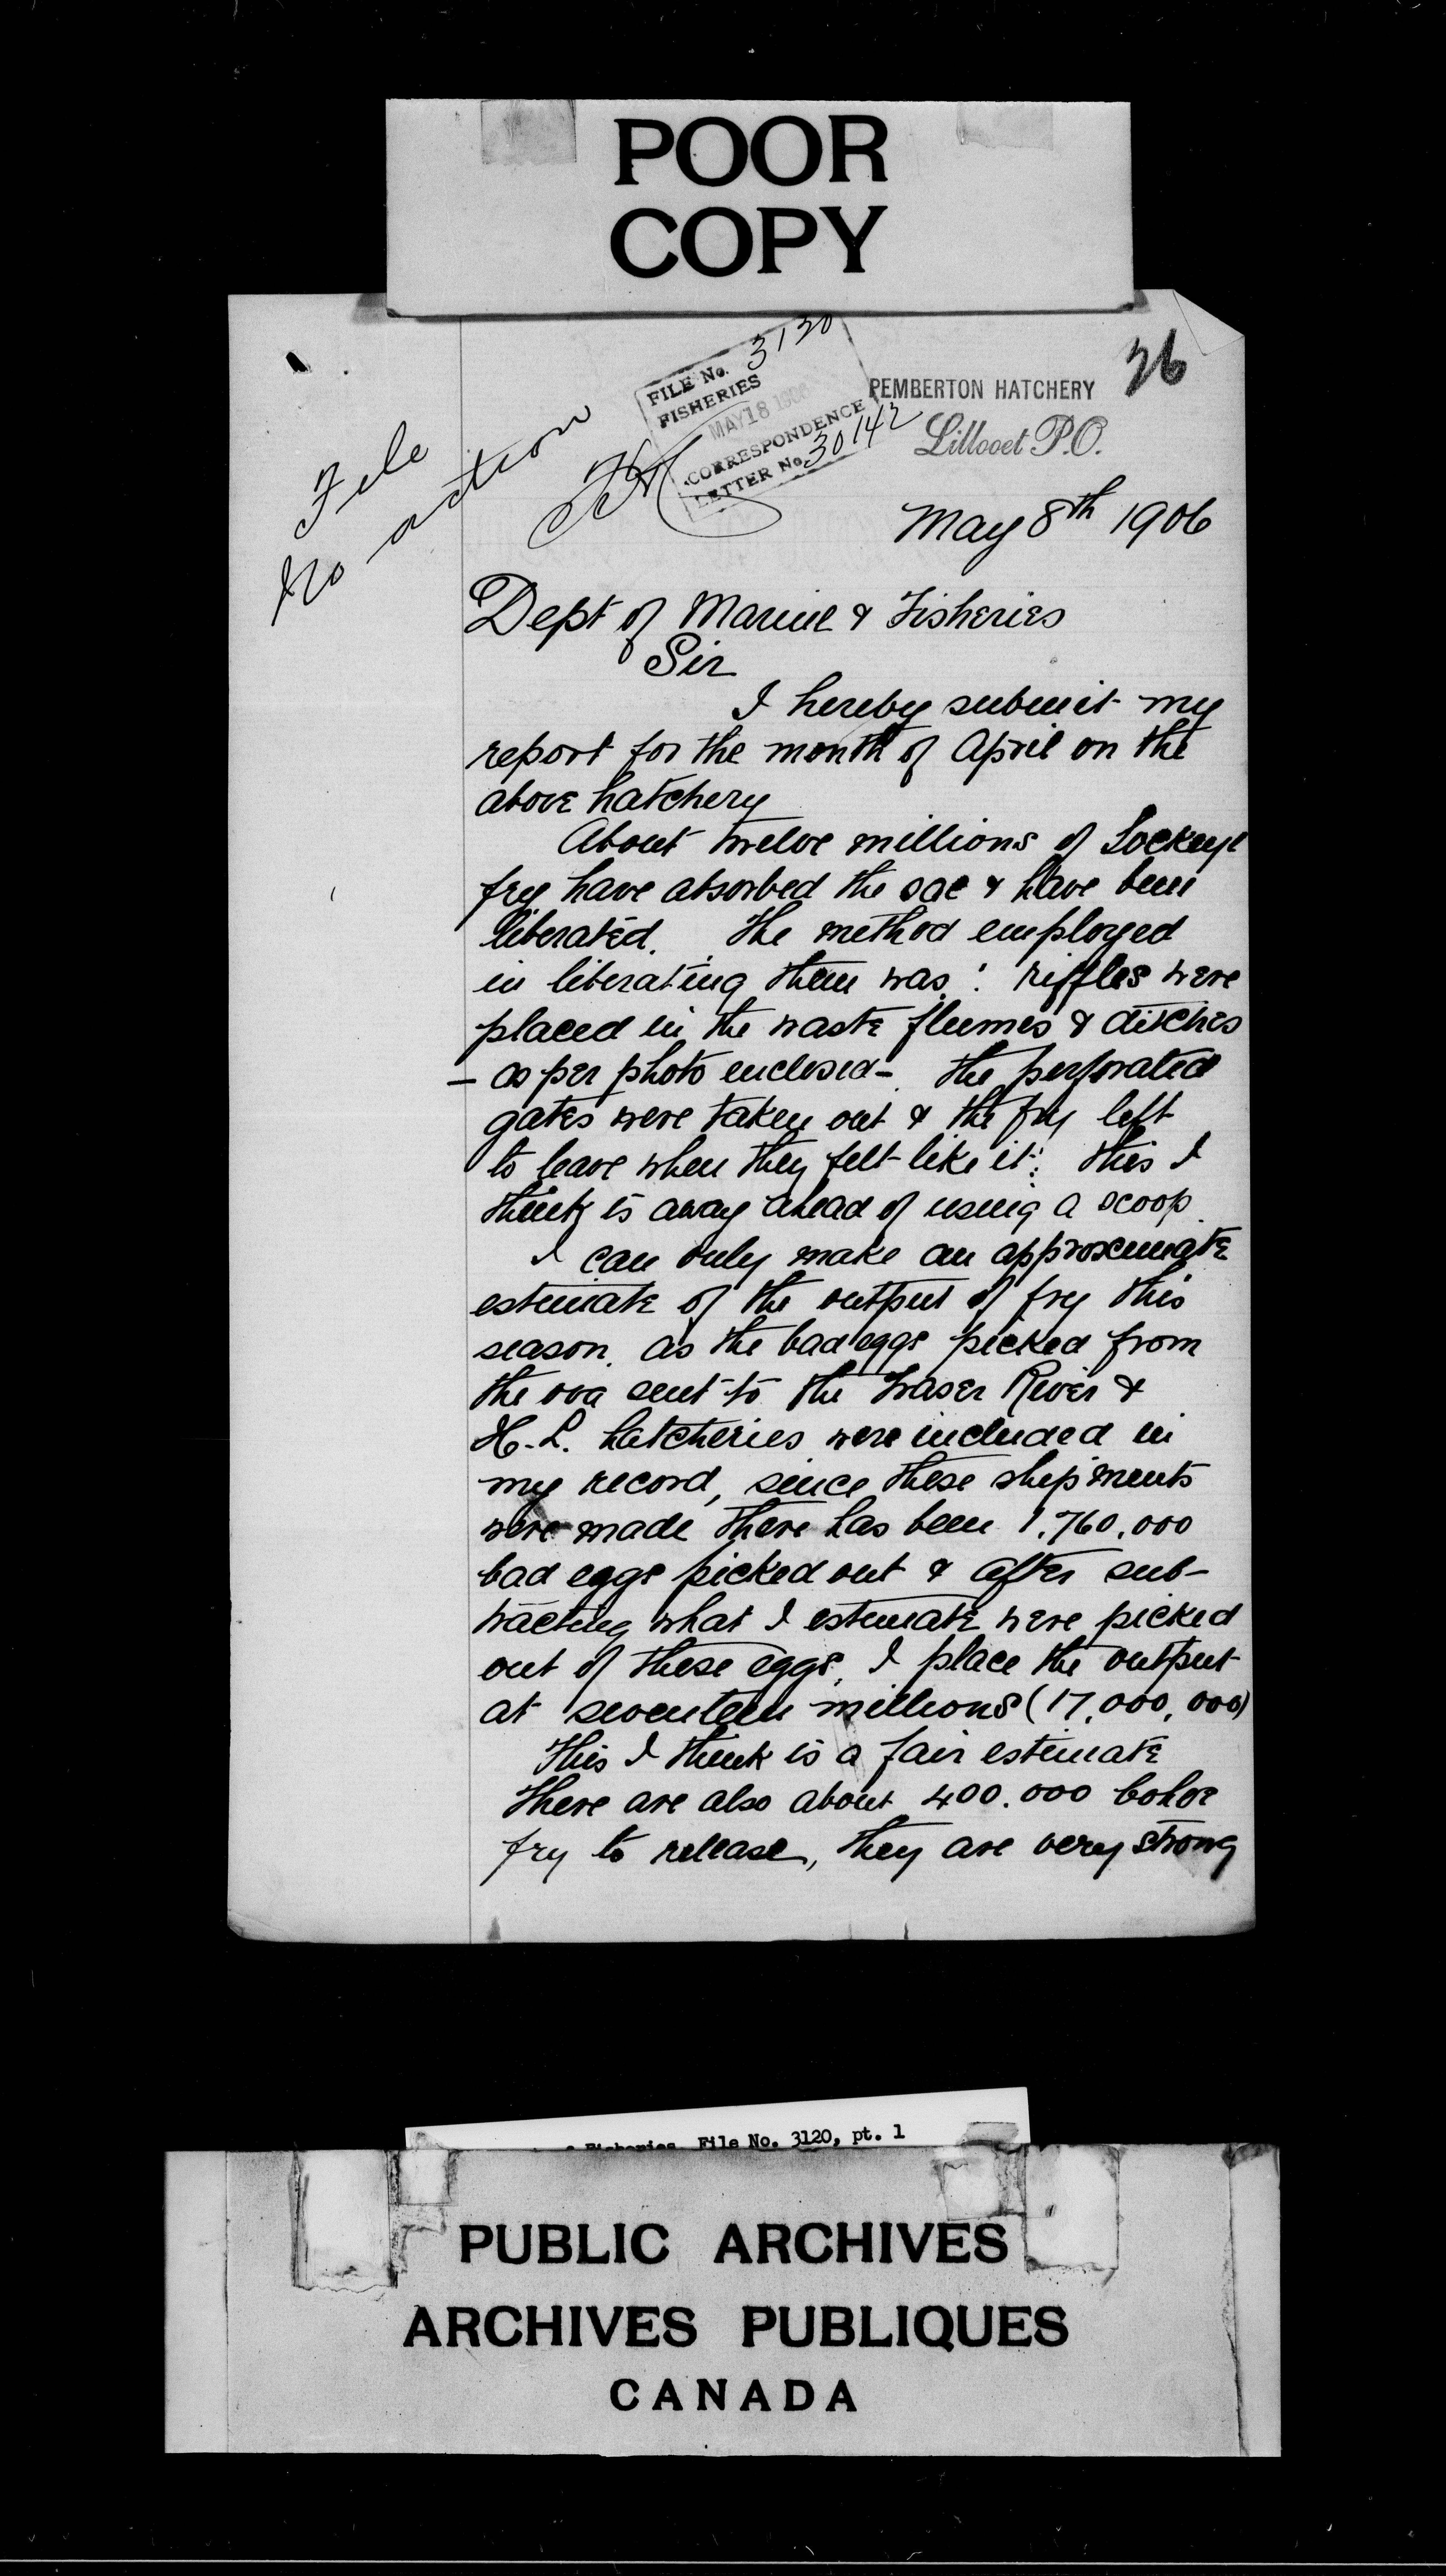 POOR
COPY
26
FILE No. 3120
FISHERIES
MAY 18 1906
CORRESPONDENCE
LETTER No. 30142
PEMBERTON HATCHERY
Lillooet P.O.
File
No action
May 8th 1906
Dept of Marine & Fisheries
Sir
I hereby submit my
report for the month of April on the
above hatchery
About twelve millions of Sockeye
fry have absorbed the sac & have been
liberated. The method employed
in liberating them was: riffles were
placed in the waste flumes & ditches
- as per photo enclosed - the perforated
gates were taken out & the fry left
to leave when they felt like it: this I
think is away ahead of using a scoop.
I can only make an approximate
estimate of the output of fry this
season. as the bad eggs picked from
the ova sent to the Fraser River &
H.L. hatcheries were included in
my record, since these shipments
were made there has been 1,760,000
bad eggs picked out & after sub-
tracting what I estimate were picked
out of these eggs, I place the output
at seventeen millions (17,000,000)
This I think is a fair estimate
There are also about 400.000 Cohoe
fry to release, they are very strong
Fisheries, File No. 3120, pt. 1
PUBLIC ARCHIVES
ARCHIVES PUBLIQUES
CANADA